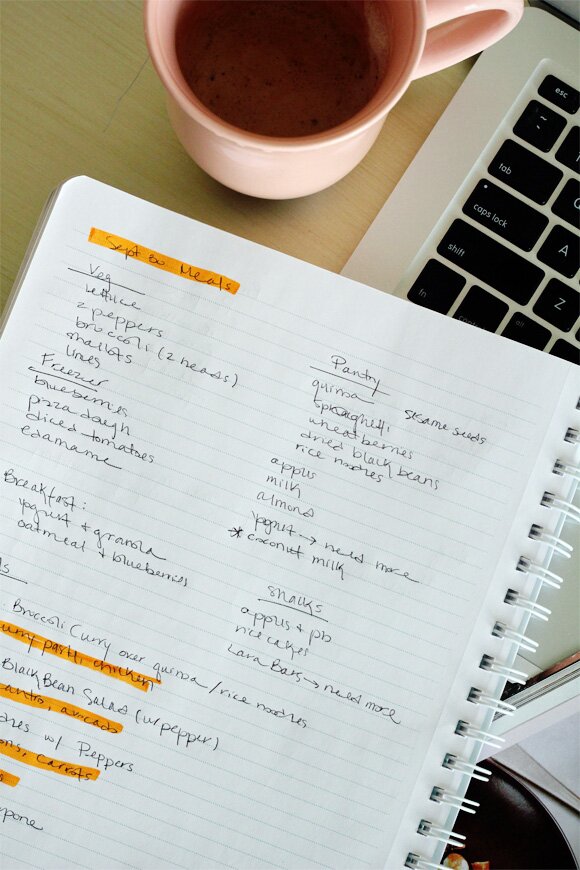 Sept 30 Meals
Veg
lettuce
2 peppers
broccoli (2 heads)
shallots
limes
Freezer
blueberries
pizza dough
diced tomatoes
edamame
Breakfast:
yogurt & granola
oatmeal & blueberries
Pantry
quinoa
spaghetti sesame seeds
wheatberries
dried black beans
rice noodles
apples
milk
almond
yogurt → need more
* coconut milk
snacks
apples & pb
rice cakes
Lara Bars → need more
Broccoli Curry over quinoa / rice noodles
chicken
Black Bean Salad (w/ pepper)
avocado
w/ Peppers
carrots
esc
~
tab
Q
caps lock
A
shift
Z
fn